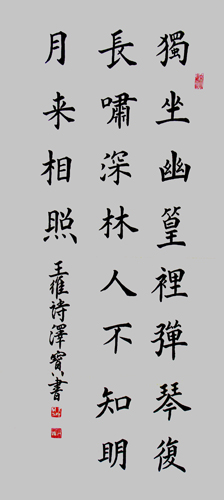 獨坐幽篁裡彈琴復
長嘯深林人不知明
月来相照
王維詩澤寶書